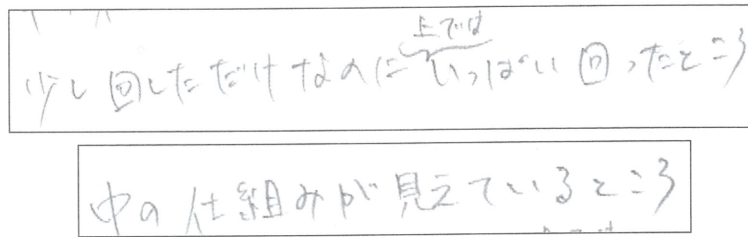 少し回しただけなのに上ではいっぱい回ったところ
中の仕組みが見えているところ